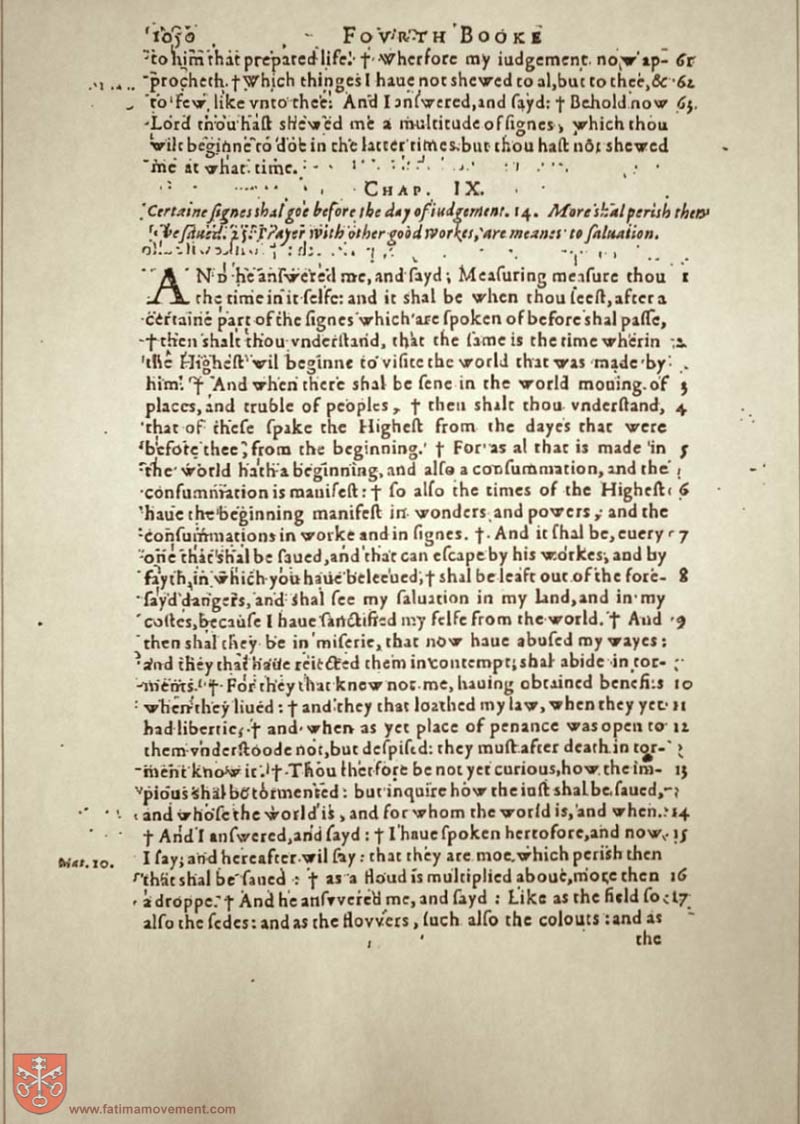 1050 FOVRTH BOOKE
to him that prepared life. † Wherfore my iudgement now ap- 61
procheth. † Which thinges I haue not shewed to al, but to thee, & 62
to few like vnto thee. And I answered, and sayd: † Behold now 63
Lord thou hast shewed me a multitude of signes, which thou
wilt beginne to doe in the latter times: but thou hast not shewed
me at what time.
CHAP. IX.
Certaine signes shal goe before the day of iudgement. 14. More shal perish then
be saued. Prayer with other good workes, are meanes to saluation.
AND he answered me, and sayd; Measuring measure thou 1
the time in it selfe: and it shal be when thou seest, after a
certaine part of the signes which are spoken of before shal passe,
† then shalt thou vnderstand, that the same is the time wherin 2
the Highest wil beginne to visite the world that was made by
him. † And when there shal be sene in the world mouing of 3
places, and truble of peoples, † then shalt thou vnderstand, 4
that of these spake the Highest from the dayes that were
before thee, from the beginning. † For as al that is made in 5
the world hath a beginning, and also a consummation, and the
consummation is manifest: † so also the times of the Highest 6
haue the beginning manifest in wonders and powers, and the
consummations in worke and in signes. † And it shal be, euery 7
one that shal be saued, and that can escape by his workes, and by
fayth, in which you haue beleeued, † shal be leaft out of the fore- 8
sayd dangers, and shal see my saluation in my land, and in my
costes, because I haue sanctified my selfe from the world. † And 9
then shal they be in miserie, that now haue abused my wayes:
and they that haue reiected them in contempt, shal abide in tor-
ments. † For they that knew not me, hauing obtained benefits 10
when they liued: † and they that loathed my law, when they yet 11
had libertie, † and when as yet place of penance was open to 12
them vnderstoode not, but despised: they must after death in tor-
ment know it. † Thou therfore be not yet curious, how the im- 13
pious shal be tormented: but inquire how the iust shal be saued,
and whose the world is, and for whom the world is, and when. 14
† And I answered, and sayd: † I haue spoken hertofore, and now 15
Mat. 10. I say, and hereafter wil say: that they are moe which perish then
that shal be saued: † as a floud is multiplied aboue, more then 16
a droppe. † And he answered me, and sayd: Like as the field so 17
also the sedes: and as the flovvers, such also the colours: and as
the
www.fatimamovement.com